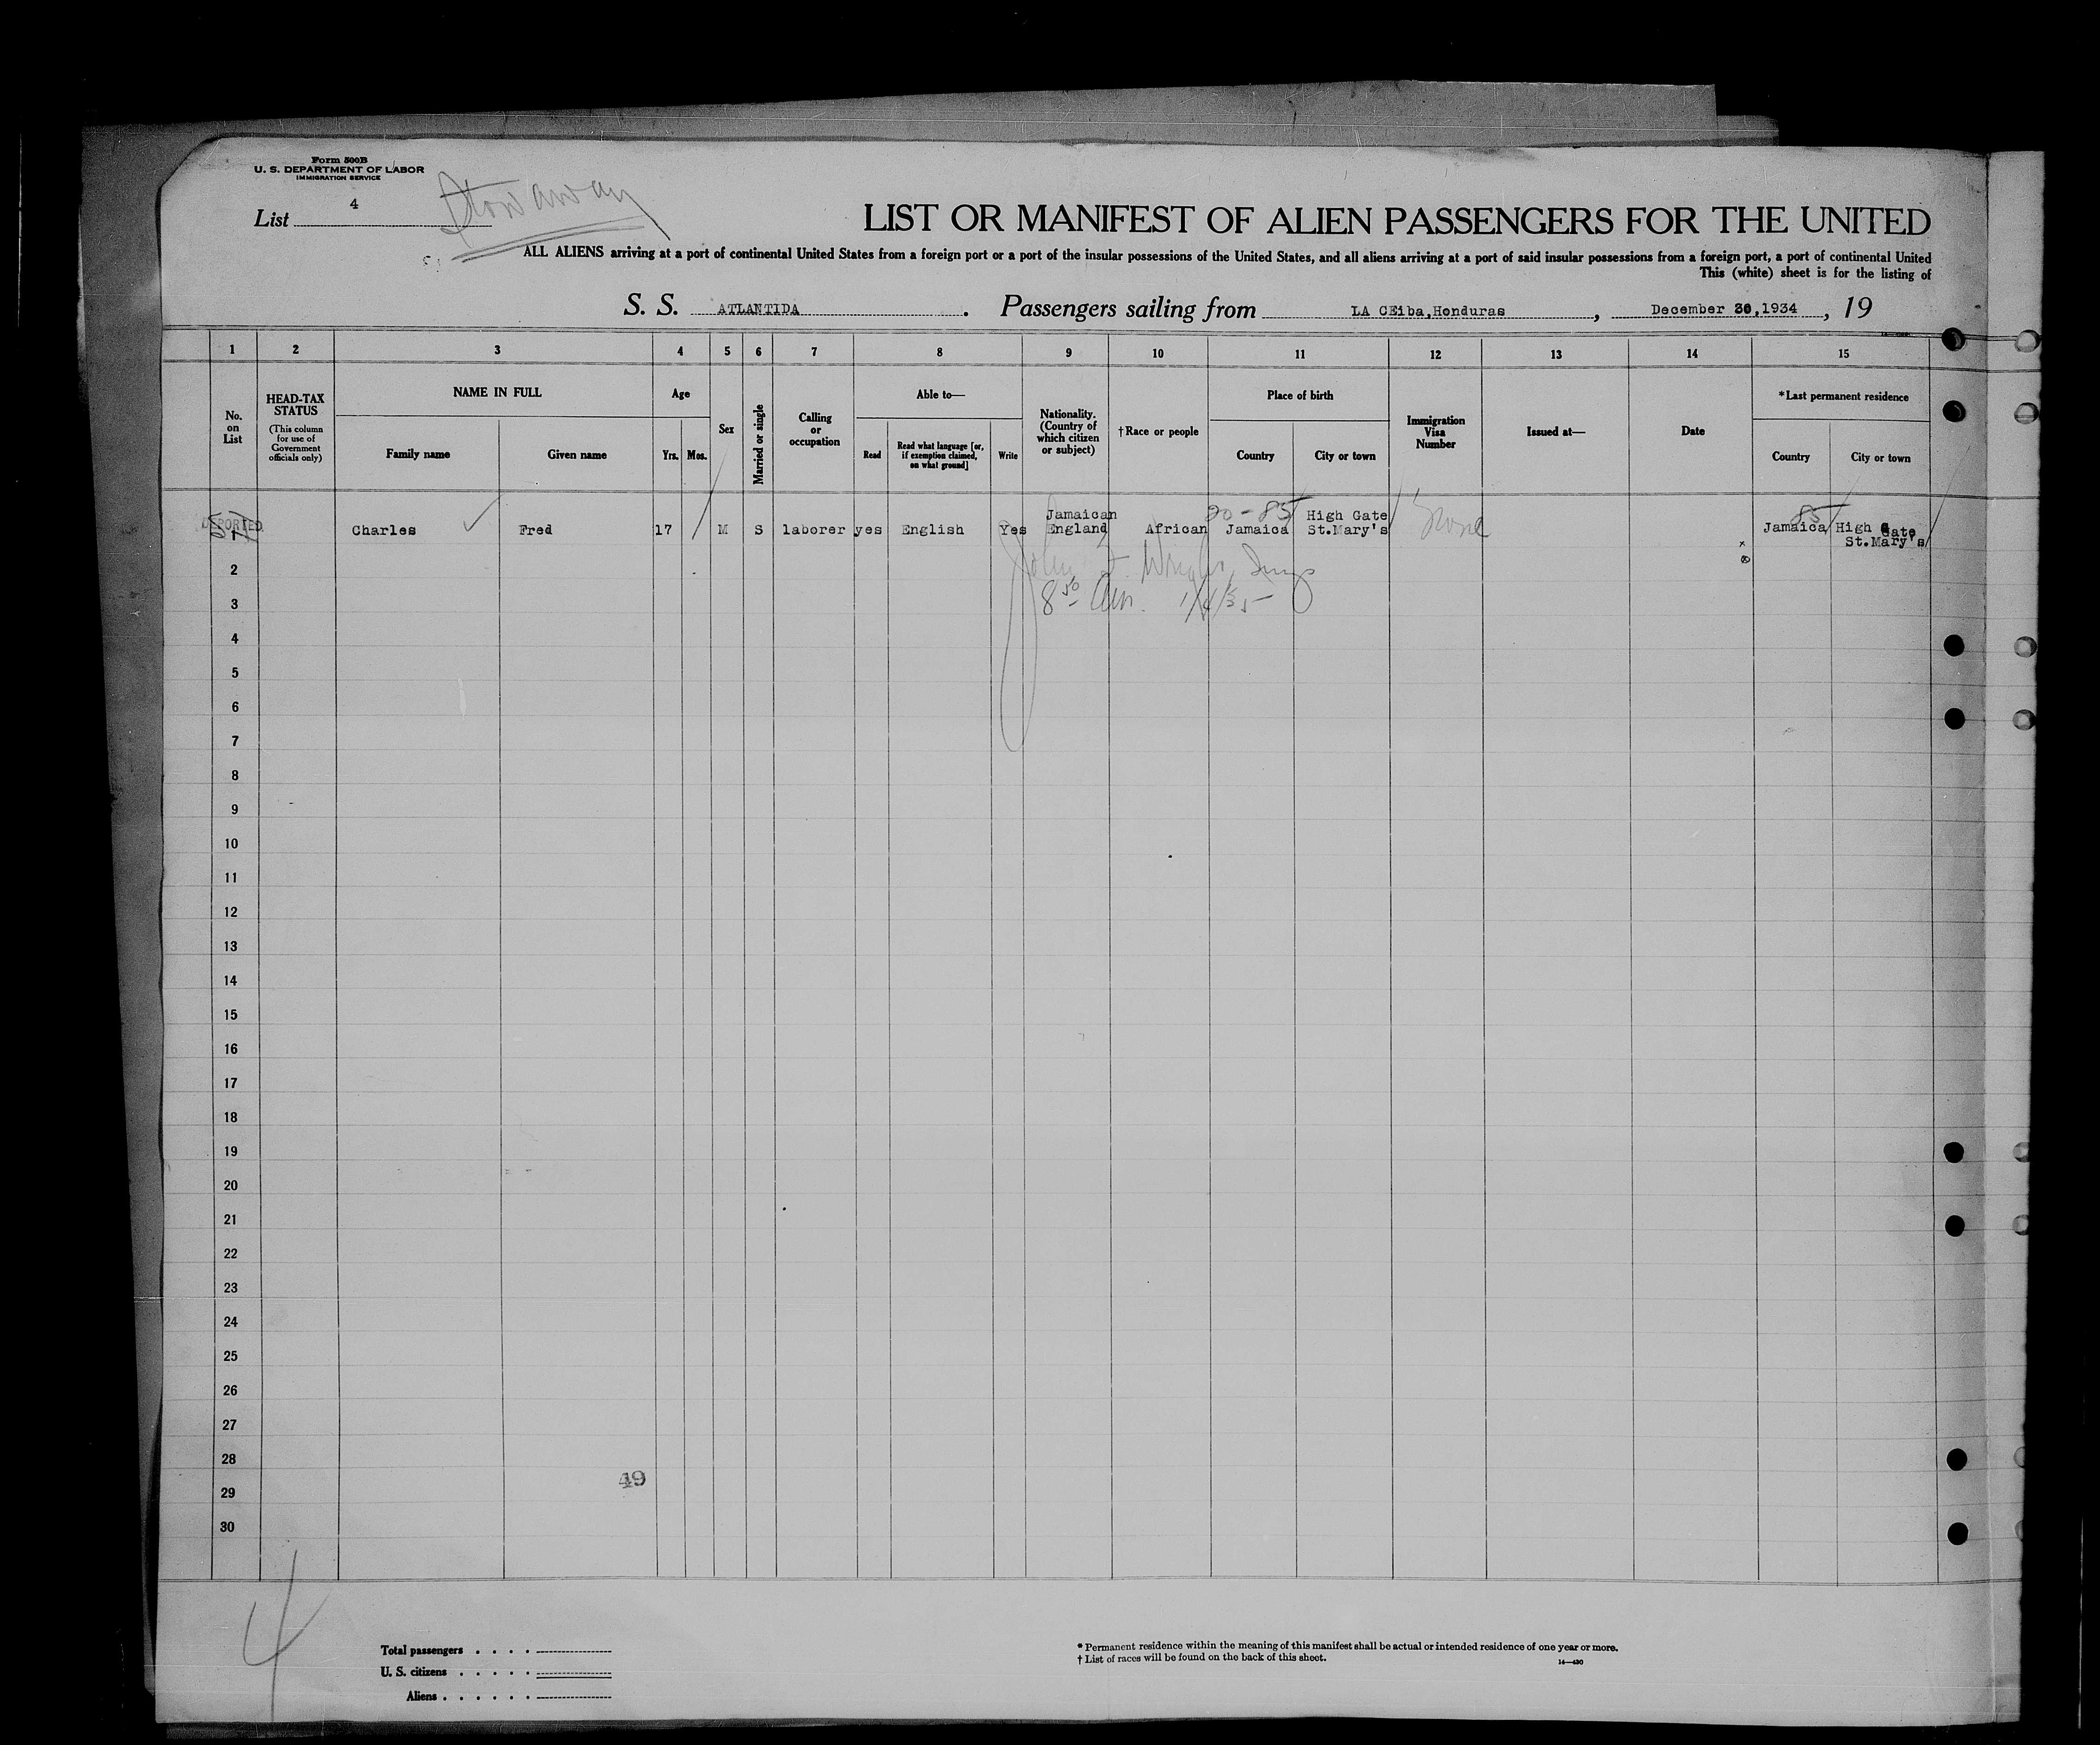 Form 500B
U. S. DEPARTMENT OF LABOR
IMMIGRATION SERVICE
List 4
Stowaway
LIST OR MANIFEST OF ALIEN PASSENGERS FOR THE UNITED
ALL ALIENS arriving at a port of continental United States from a foreign port or a port of the insular possessions of the United States, and all aliens arriving at a port of said insular possessions from a foreign port, a port of continental United
This (white) sheet is for the listing of
S. S. ATLANTIDA. Passengers sailing from LA CEiba,Honduras, December 30,1934, 19
1 2 3 4 5 6 7 8 9 10 11 12 13 14 15
No. on List
HEAD-TAX STATUS
(This column for use of Government officials only)
NAME IN FULL
Family name Given name
Age
Yrs. Mos.
Sex
Married or single
Calling or occupation
Able to—
Read
Read what language [or, if exemption claimed, on what ground]
Write
Nationality. (Country of which citizen or subject)
†Race or people
Place of birth
Country City or town
Immigration Visa Number
Issued at—
Date
*Last permanent residence
Country City or town
DEPORTED
Charles Fred 17 M S laborer yes English Yes Jamaican England African 20-85 Jamaica High Gate St.Mary's None 85 Jamaica High Gate St.Mary's
John Wright, Insp
8 50 Am. 1/4/35
2
3
4
5
6
7
8
9
10
11
12
13
14
15
16
17
18
19
20
21
22
23
24
25
26
27
28
49
29
30
4
Total passengers
U. S. citizens
Aliens
* Permanent residence within the meaning of this manifest shall be actual or intended residence of one year or more.
† List of races will be found on the back of this sheet.
14—430